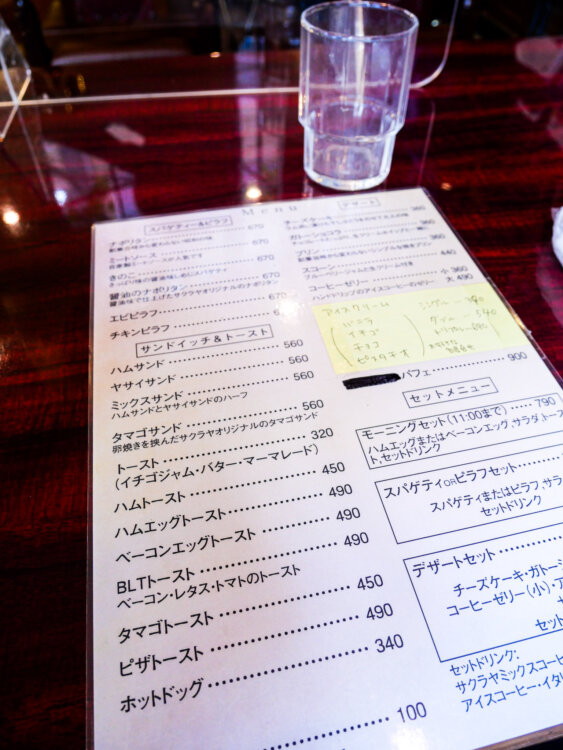 Menu
スパゲティー&ピラフ
ナポリタン 670
ミートソース 670
きのこ 670
醤油のナポリタン 670
醤油味で仕上げたサクラヤオリジナルのナポリタン
エビピラフ 670
チキンピラフ 670
サンドイッチ&トースト
ハムサンド 560
ヤサイサンド 560
ミックスサンド 560
ハムサンドとヤサイサンドのハーフ
タマゴサンド 560
卵焼きを挟んだサクラヤオリジナルのタマゴサンド
トースト 320
(イチゴジャム・バター・マーマレード)
ハムトースト 450
ハムエッグトースト 490
ベーコンエッグトースト 490
BLTトースト 490
ベーコン・レタス・トマトのトースト
タマゴトースト 450
ピザトースト 490
ホットドッグ 340
100
デザート
チーズケーキ 360
ガトーショコラ 360
プリン 360
スコーン 440
ブルーベリージャムと生クリーム付き
コーヒーゼリー 小 360
大 490
ハンドドリップのアイスコーヒーのゼリー
アイスクリーム
バニラ
イチゴ
チョコ
ピスタチオ
シングル
ダブル 540
パフェ 900
セットメニュー
モーニングセット(11:00まで) 790
ハムエッグまたはベーコンエッグ、サラダ、トース
ト、セットドリンク
スパゲティORピラフセット
スパゲティまたはピラフ、サラ
セットドリンク
デザートセット
チーズケーキ・ガトーシ
コーヒーゼリー(小)・ア
セット
セットドリンク:
サクラヤミックスコーヒ
アイスコーヒー・イタリ